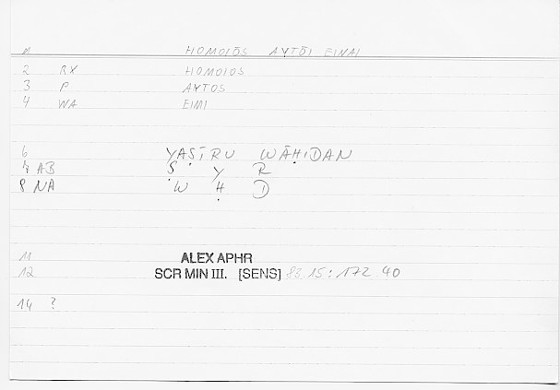 1 HOMOIŌS AYTŌI EINAI
2 RX HOMOIOS
3 P AYTOS
4 WA EIMI
6 YAṢĪRU WĀḤIDAN
7 AB Ṣ Y R
8 NA W Ḥ D
11 ALEX APHR
12 SCR MIN III. [SENS] 83. 15: 172 40
14 ?